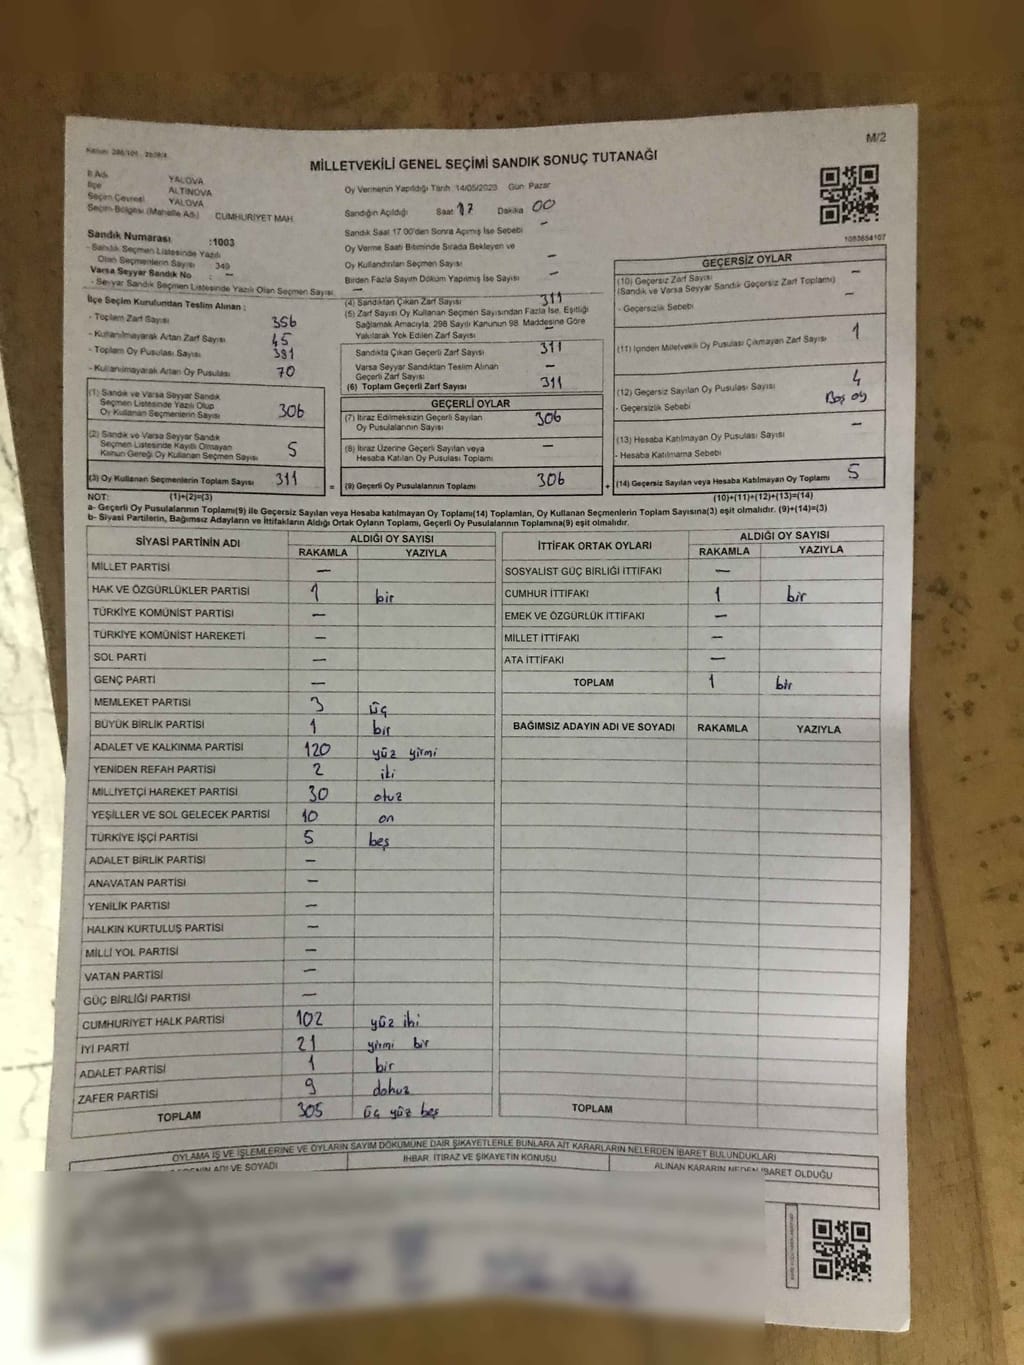 M/2
MİLLETVEKİLİ GENEL SEÇİMİ SANDIK SONUÇ TUTANAĞI
İl Adı YALOVA
İlçe ALTINOVA
Seçim Çevresi YALOVA
Seçim Bölgesi (Mahalle Adı) CUMHURİYET MAH.
Sandık Numarası :1003
- Sandık Seçmen Listesinde Yazılı
Olan Seçmenlerin Sayısı 349
Varsa Seyyar Sandık No : —
- Seyyar Sandık Seçmen Listesinde Yazılı Olan Seçmen Sayısı —
Oy Vermenin Yapıldığı Tarih 14/05/2023 Gün Pazar
Sandığın Açıldığı Saat 17 Dakika 00
Sandık Saat 17:00'den Sonra Açılmış İse Sebebi —
Oy Verme Saati Bitiminde Sırada Bekleyen ve
Oy Kullandırılan Seçmen Sayısı —
Birden Fazla Sayım Döküm Yapılmış İse Sayısı —
1083654107
İlçe Seçim Kurulundan Teslim Alınan :
- Toplam Zarf Sayısı 356
- Kullanılmayarak Artan Zarf Sayısı 45
- Toplam Oy Pusulası Sayısı 381
- Kullanılmayarak Artan Oy Pusulası 70
(1) Sandık ve Varsa Seyyar Sandık
Seçmen Listesinde Yazılı Olup
Oy Kullanan Seçmenlerin Sayısı 306
(2) Sandık ve Varsa Seyyar Sandık
Seçmen Listesinde Kayıtlı Olmayan
Kanun Gereği Oy Kullanan Seçmen Sayısı 5
(3) Oy Kullanan Seçmenlerin Toplam Sayısı 311 =
(4) Sandıktan Çıkan Zarf Sayısı 311
(5) Zarf Sayısı Oy Kullanan Seçmen Sayısından Fazla İse, Eşitliği
Sağlamak Amacıyla, 298 Sayılı Kanunun 98. Maddesine Göre
Yakılarak Yok Edilen Zarf Sayısı
Sandıkta Çıkan Geçerli Zarf Sayısı 311
Varsa Seyyar Sandıktan Teslim Alınan
Geçerli Zarf Sayısı —
(6) Toplam Geçerli Zarf Sayısı 311
GEÇERLİ OYLAR
(7) İtiraz Edilmeksizin Geçerli Sayılan
Oy Pusulalarının Sayısı 306
(8) İtiraz Üzerine Geçerli Sayılan veya
Hesaba Katılan Oy Pusulası Toplamı —
(9) Geçerli Oy Pusulalarının Toplamı 306 +
GEÇERSİZ OYLAR
(10) Geçersiz Zarf Sayısı —
(Sandık ve Varsa Seyyar Sandık Geçersiz Zarf Toplamı)
- Geçersizlik Sebebi —
(11) İçinden Milletvekili Oy Pusulası Çıkmayan Zarf Sayısı 1
(12) Geçersiz Sayılan Oy Pusulası Sayısı 4
- Geçersizlik Sebebi Boş oy
(13) Hesaba Katılmayan Oy Pusulası Sayısı —
- Hesaba Katılmama Sebebi
(14) Geçersiz Sayılan veya Hesaba Katılmayan Oy Toplamı 5
NOT: (1)+(2)=(3) (10)+(11)+(12)+(13)=(14)
a- Geçerli Oy Pusulalarının Toplamı(9) ile Geçersiz Sayılan veya Hesaba Katılmayan Oy Toplamı(14) Toplamları, Oy Kullanan Seçmenlerin Toplam Sayısına(3) eşit olmalıdır. (9)+(14)=(3)
b- Siyasi Partilerin, Bağımsız Adayların ve İttifakların Aldığı Ortak Oyların Toplamı, Geçerli Oy Pusulalarının Toplamına(9) eşit olmalıdır.
SİYASİ PARTİNİN ADI ALDIĞI OY SAYISI
RAKAMLA YAZIYLA
MİLLET PARTİSİ —
HAK VE ÖZGÜRLÜKLER PARTİSİ 1 bir
TÜRKİYE KOMÜNİST PARTİSİ —
TÜRKİYE KOMÜNİST HAREKETİ —
SOL PARTİ —
GENÇ PARTİ —
MEMLEKET PARTİSİ 3 üç
BÜYÜK BİRLİK PARTİSİ 1 bir
ADALET VE KALKINMA PARTİSİ 120 yüz yirmi
YENİDEN REFAH PARTİSİ 2 iki
MİLLİYETÇİ HAREKET PARTİSİ 30 otuz
YEŞİLLER VE SOL GELECEK PARTİSİ 10 on
TÜRKİYE İŞÇİ PARTİSİ 5 beş
ADALET BİRLİK PARTİSİ —
ANAVATAN PARTİSİ —
YENİLİK PARTİSİ —
HALKIN KURTULUŞ PARTİSİ —
MİLLİ YOL PARTİSİ —
VATAN PARTİSİ —
GÜÇ BİRLİĞİ PARTİSİ —
CUMHURİYET HALK PARTİSİ 102 yüz iki
İYİ PARTİ 21 yirmi bir
ADALET PARTİSİ 1 bir
ZAFER PARTİSİ 9 dokuz
TOPLAM 305 üç yüz beş
İTTİFAK ORTAK OYLARI ALDIĞI OY SAYISI
RAKAMLA YAZIYLA
SOSYALİST GÜÇ BİRLİĞİ İTTİFAKI —
CUMHUR İTTİFAKI 1 bir
EMEK VE ÖZGÜRLÜK İTTİFAKI —
MİLLET İTTİFAKI —
ATA İTTİFAKI —
TOPLAM 1 bir
BAĞIMSIZ ADAYIN ADI VE SOYADI RAKAMLA YAZIYLA
TOPLAM
OYLAMA İŞ VE İŞLEMLERİNE VE OYLARIN SAYIM DÖKÜMÜNE DAİR ŞİKAYETLERLE BUNLARA AİT KARARLARIN NELERDEN İBARET BULUNDUKLARI
ADI VE SOYADI İHBAR, İTİRAZ VE ŞİKAYETİN KONUSU ALINAN KARARIN NEDEN İBARET OLDUĞU